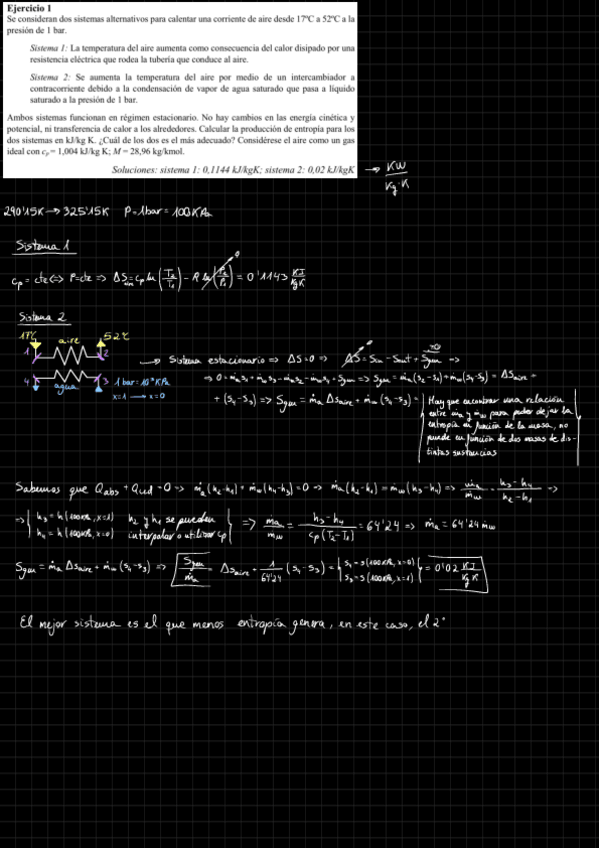 Ejercicio 1
Se consideran dos sistemas alternativos para calentar una corriente de aire desde 17ºC a 52ºC a la
presión de 1 bar.
Sistema 1: La temperatura del aire aumenta como consecuencia del calor disipado por una
resistencia eléctrica que rodea la tubería que conduce al aire.
Sistema 2: Se aumenta la temperatura del aire por medio de un intercambiador a
contracorriente debido a la condensación de vapor de agua saturado que pasa a líquido
saturado a la presión de 1 bar.
Ambos sistemas funcionan en régimen estacionario. No hay cambios en las energía cinética y
potencial, ni transferencia de calor a los alrededores. Calcular la producción de entropía para los
dos sistemas en kJ/kg K. ¿Cuál de los dos es el más adecuado? Considérese el aire como un gas
ideal con cp = 1,004 kJ/kg K; M = 28,96 kg/kmol.
Soluciones: sistema 1: 0,1144 kJ/kgK; sistema 2: 0,02 kJ/kgK → KW / Kg·K
290'15K → 325'15K P=1bar = 100KPa
Sistema 1
cp = cte ⇔ P=cte ⇒ ΔSaire = cp ln (T2/T1) - R ln (P2/P1) = 0'1143 KJ/KgK
0
Sistema 2
17ºC aire 52ºC
1 2
4 agua 3 1 bar = 10² KPa
x=1 → x=0
→ Sistema estacionario ⇒ ΔS=0 ⇒ ΔS = Sin - Sout + Sgen ⇒
⇒ 0 = ṁa s1 + ṁw s3 - ṁa s2 - ṁw s4 + Sgen ⇒ Sgen = ṁa (s2 - s1) + ṁw (s4 - s3) = ΔSaire +
+ (s4 - s3) ⇒ Sgen = ṁa ΔSaire + ṁw (s4 - s3) =
Hay que encontrar una relación
entre ṁa y ṁw para poder dejar la
entropía en función de la masa, no
puede en función de dos masas de dis-
tintas sustancias
Sabemos que Qabs + Qced = 0 → ṁa (h2 - h1) + ṁw (h4 - h3) = 0 → ṁa (h2 - h1) = ṁw (h3 - h4) ⇒ ṁa/ṁw = h3 - h4 / h2 - h1 ⇒
⇒ h3 = h (100KPa, x=1) h2 y h1 se pueden ⇒ ma/mw = h3 - h4 / cp (T2 - T1) = 64'24 ⇒ ṁa = 64'24 ṁw
h4 = h (100KPa, x=0) interpolar o utilizar cp
Sgen = ṁa ΔSaire + ṁw (s4 - s3) ⇒ Sgen/ṁa = ΔSaire + 1/64'24 (s4 - s3) = s4 = s (100KPa, x=0) = 0'02 KJ/KgK
s3 = s (100KPa, x=1)
El mejor sistema es el que menos entropía genera, en este caso, el 2º